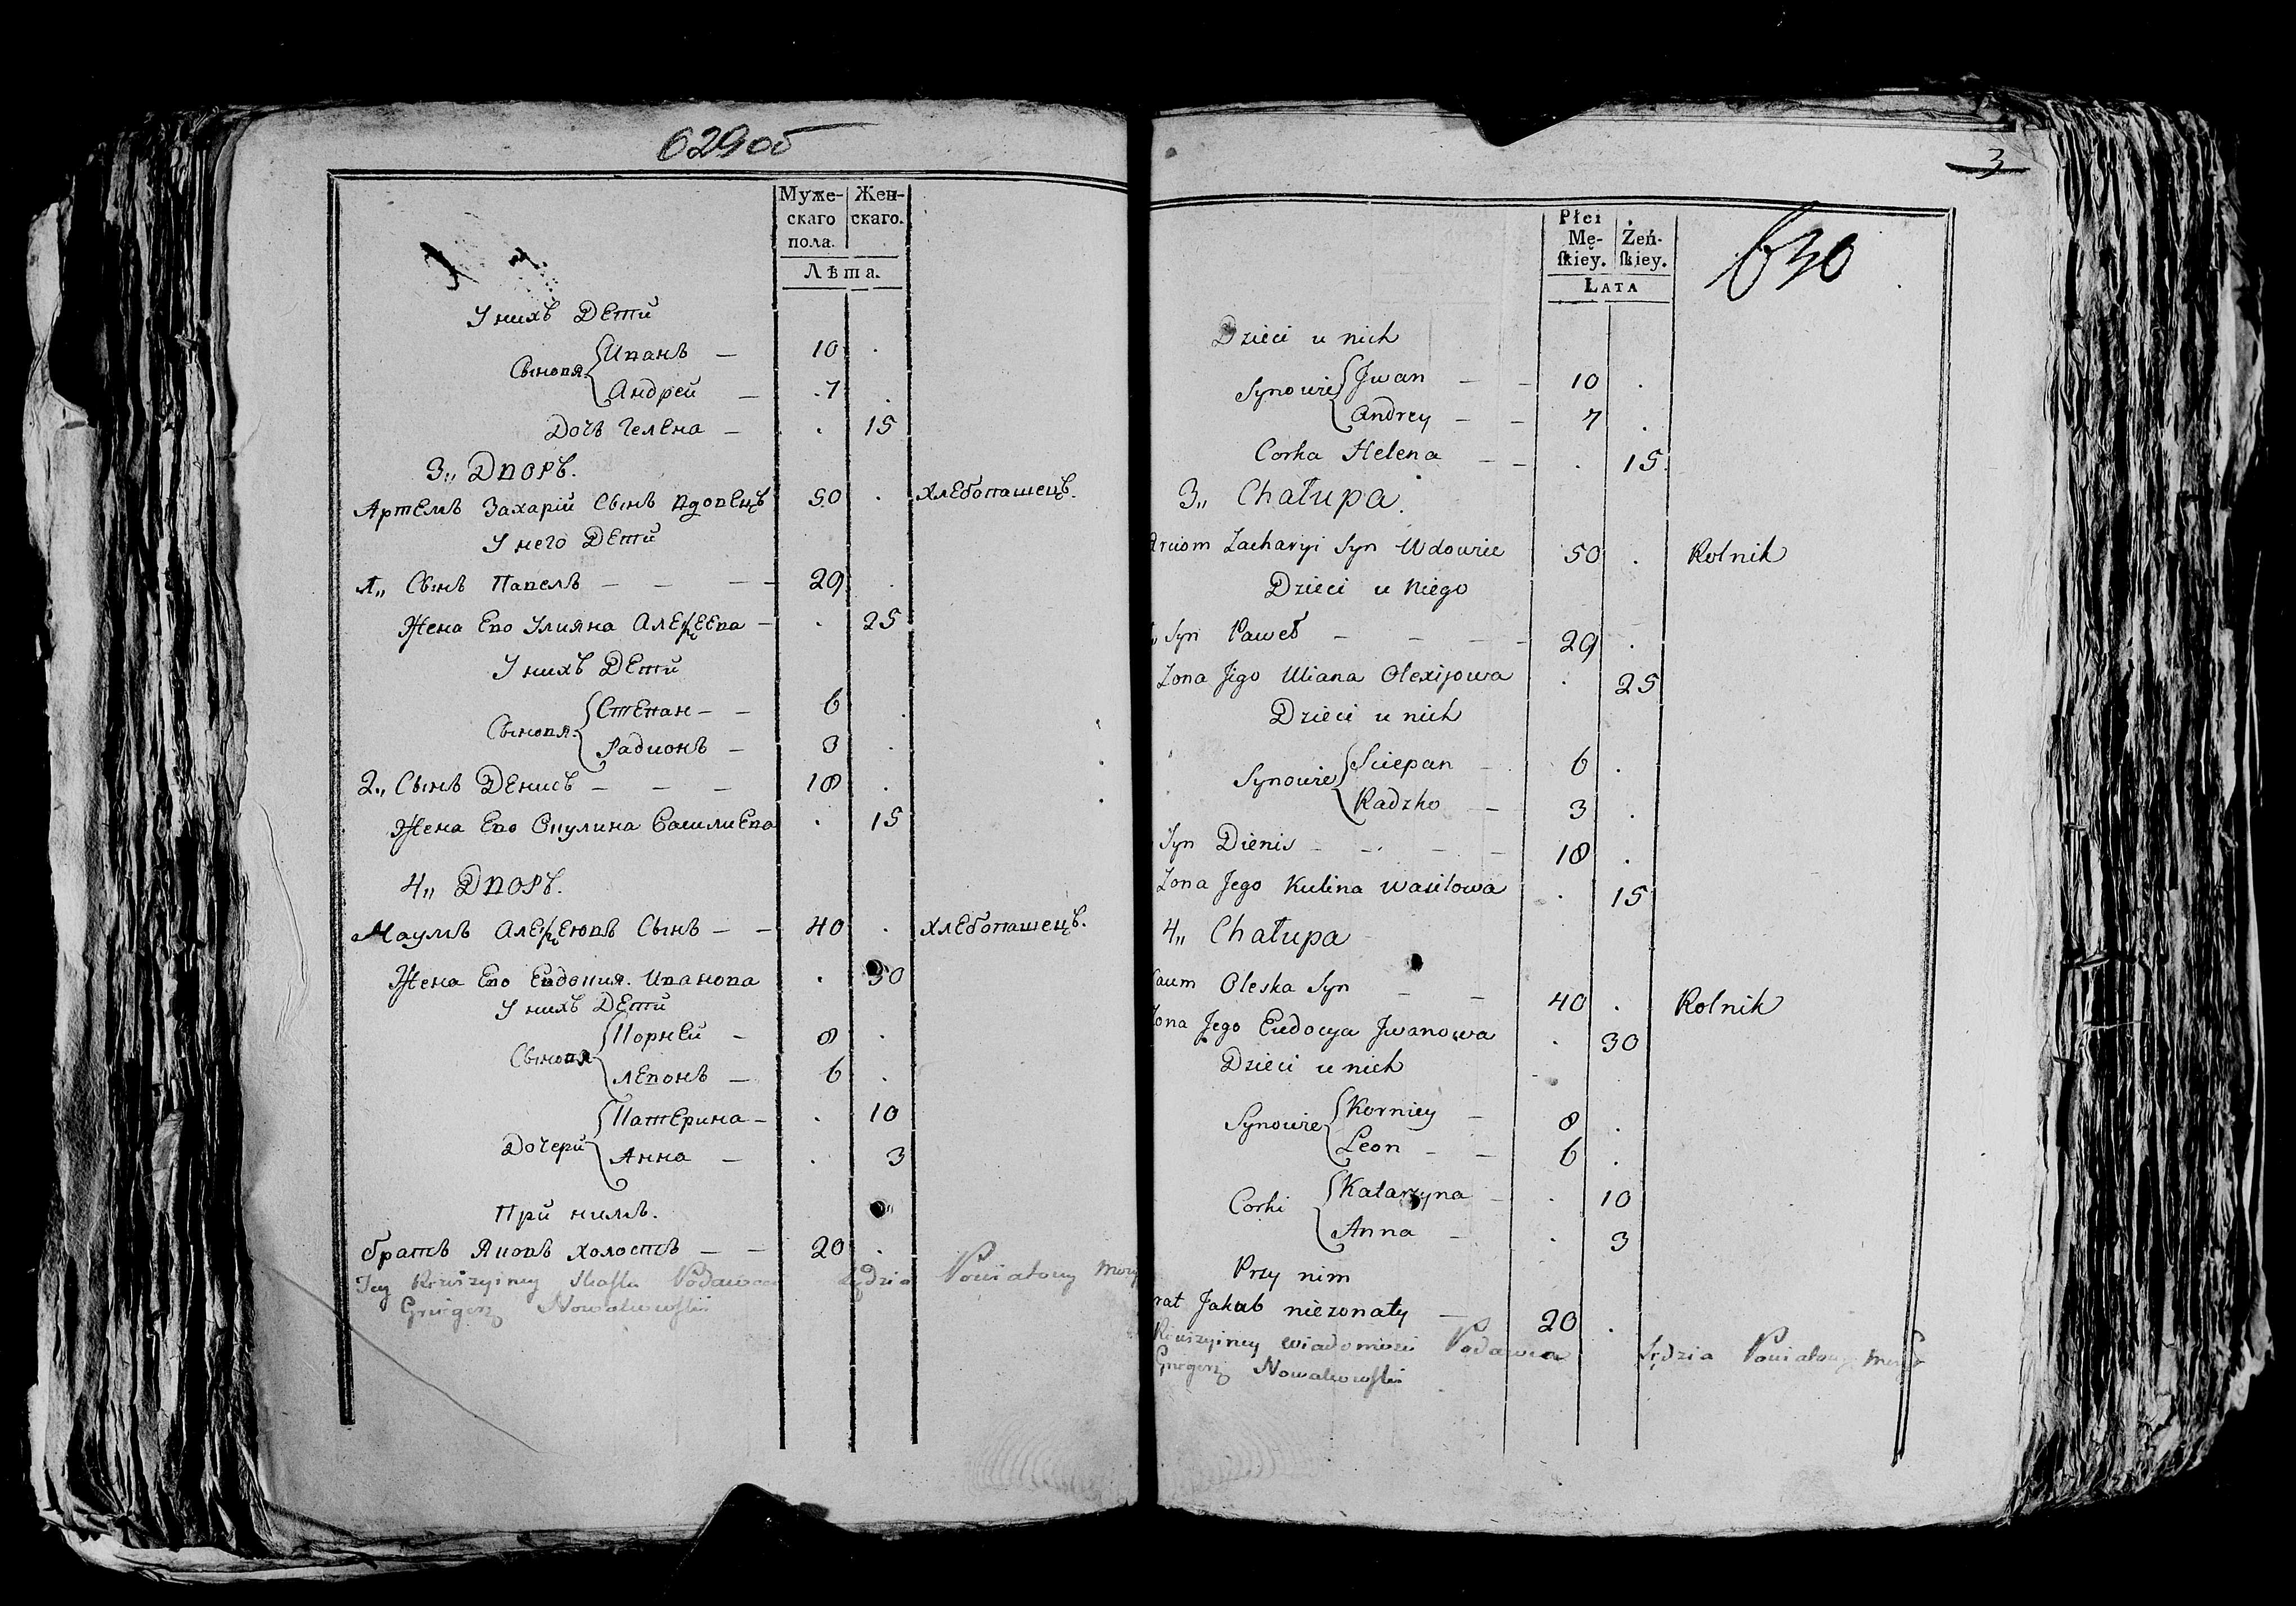 629об
Муже-
скаго
пола.
Жен-
скаго.
Лѣта.
У нихъ Дети
Сыновя Иванъ — 10 .
Андрей — 7 .
Дочь Гелена — . 15
3,, Дворъ.
Артемъ Захарій Сынъ Вдовецъ 50 . Хлебопашецъ.
У него Дети
1,, Сынъ Павелъ — — — 29 .
Жена Ево Улияна Алексеева — . 25
У нихъ Дети
Сыновя Степан — — 6 .
Радионъ — 3 .
2,, Сынъ Денисъ — — — 18 .
Жена Ево Окулина Василиева . 15
4,, Дворъ.
Наумъ Алексеювъ Сынъ — — 40 . Хлебопашецъ.
Жена Ево Евдокия Иванова . 30
У нихъ Дети
Сыновя Корней — 8 .
Левонъ — 6 .
Дочери Катерина — . 10
Анна — . 3
При нимъ.
братъ Яковъ холостъ — — 20 .
Tey Rewizyiney Skaski Podawca Sędzia Powiatowy
Grzegorz Nowakowski
3
630
Płci
Mę-
ſkiey.
Żeń-
ſkiey.
Lata
Dzieci u nich
Synowie Jwan — — 10 .
Andrey — — 7 .
Corka Helena — — . 15.
3,, Chałupa.
Arciom Zacharyi Syn Wdowiec 50 . Rolnik
Dzieci u Niego
Syn Paweł — — — — 29 .
Zona Jego Uliana Olexijowa . 25
Dzieci u nich
Synowie Sciepan — 6 .
Radzko — 3 .
Syn Dienis — — — — 18 .
Zona Jego Kulina Wasilowa . 15
4,, Chałupa
aum Oleska Syn — — 40 . Rolnik
Zona Jego Eudocya Jwanowa . 30
Dzieci u nich
Synowie Korniey — 8 .
Leon — — 6 .
Corki Katarzyna — . 10
Anna — . 3
Przy nim
rat Jakub niezonaty — 20 .
Rewizyiney wiadomości Podawca Sędzia Powiatowy
Grzegorz Nowakowski